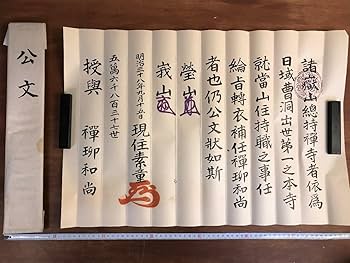 公文
諸嶽山總持禪寺者依為
日域曹洞出世第一之本寺
就當山住持職之事任
綸旨轉衣補任禪瑠和尚
者也仍公文狀如斯
瑩山
峩山
明治三十八年九月十五日 現住素童
五萬六千八百三十七世
授與 禪瑠和尚